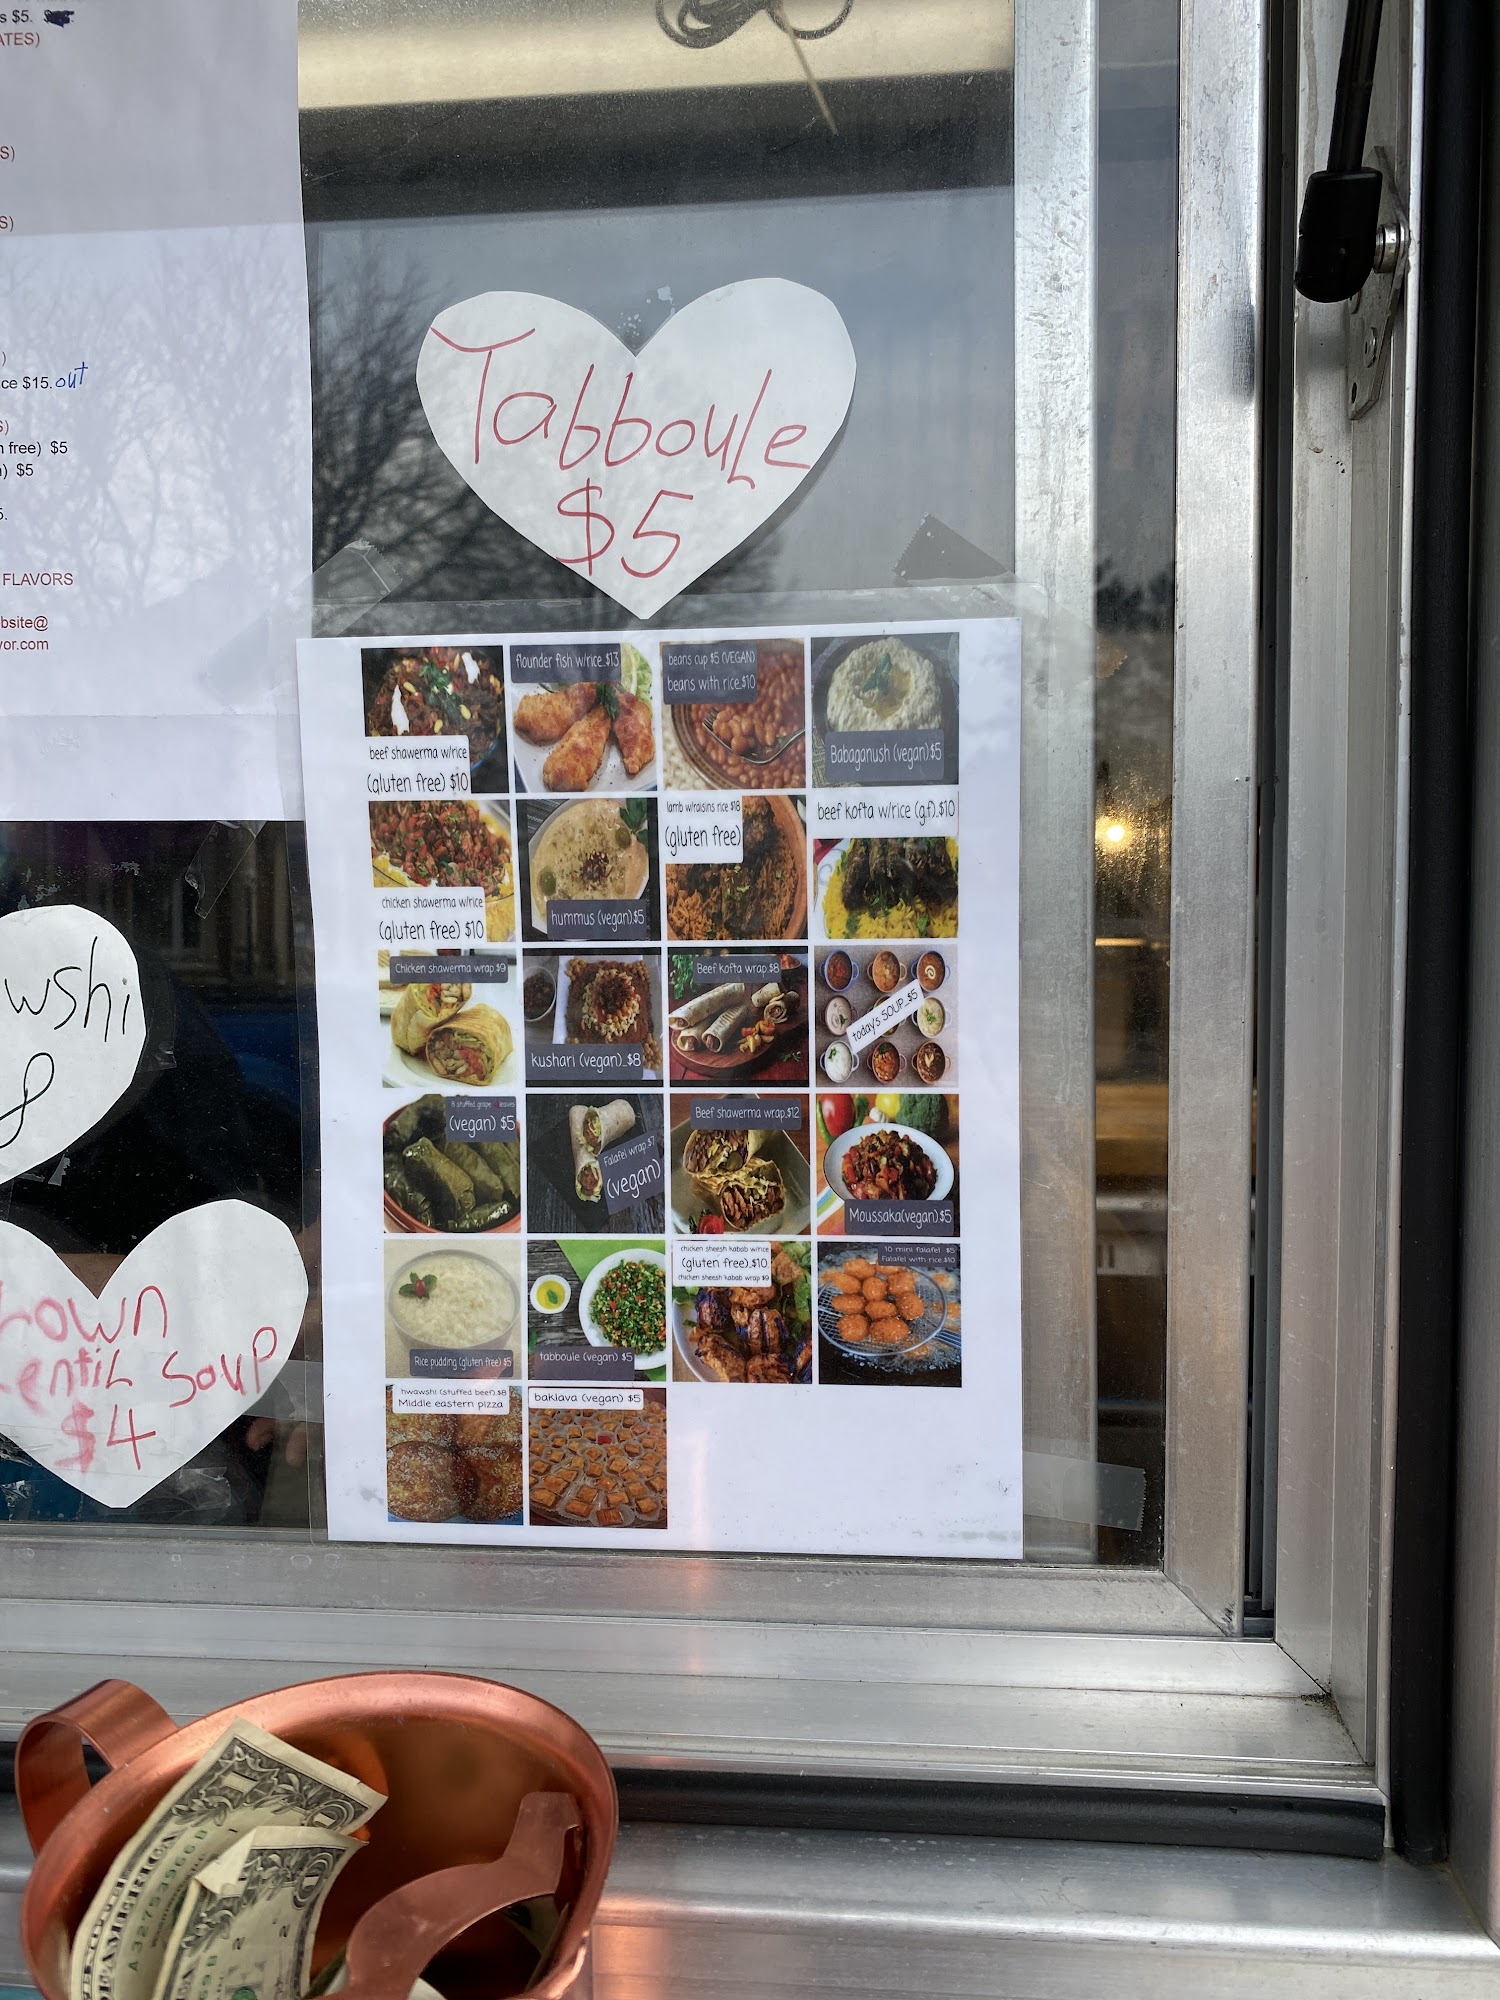 s $5.
ATES)
S)
S)
)
ce $15. out
S)
n free) $5
) $5
5.
FLAVORS
bsite@
vor.com
Tabboule
$5
beef shawerma w/rice
(gluten free) $10
flounder fish w/rice..$13
beans cup $5 (VEGAN)
beans with rice.$10
Babaganush (vegan).$5
chicken shawerma w/rice
(gluten free) $10
hummus (vegan).$5
lamb w/raisins rice $18
(gluten free)
beef kofta w/rice (g.f)..$10
Chicken shawerma wrap.$9
kushari (vegan)..$8
Beef kofta wrap.$8
today's SOUP..$5
8 stuffed grape leaves
(vegan) $5
Falafel wrap.$7
(vegan)
Beef shawerma wrap.$12
Moussaka(vegan).$5
Rice pudding (gluten free) $5
tabboule (vegan) $5
chicken sheesh kabab w/rice
(gluten free).$10
chicken sheesh kabab wrap $9
10 mini falafel $5
Falafel with rice.$10
hwawshi (stuffed beef).$8
Middle eastern pizza
baklava (vegan) $5
wshi
8
rown
entil Soup
$4
A 32753966 B